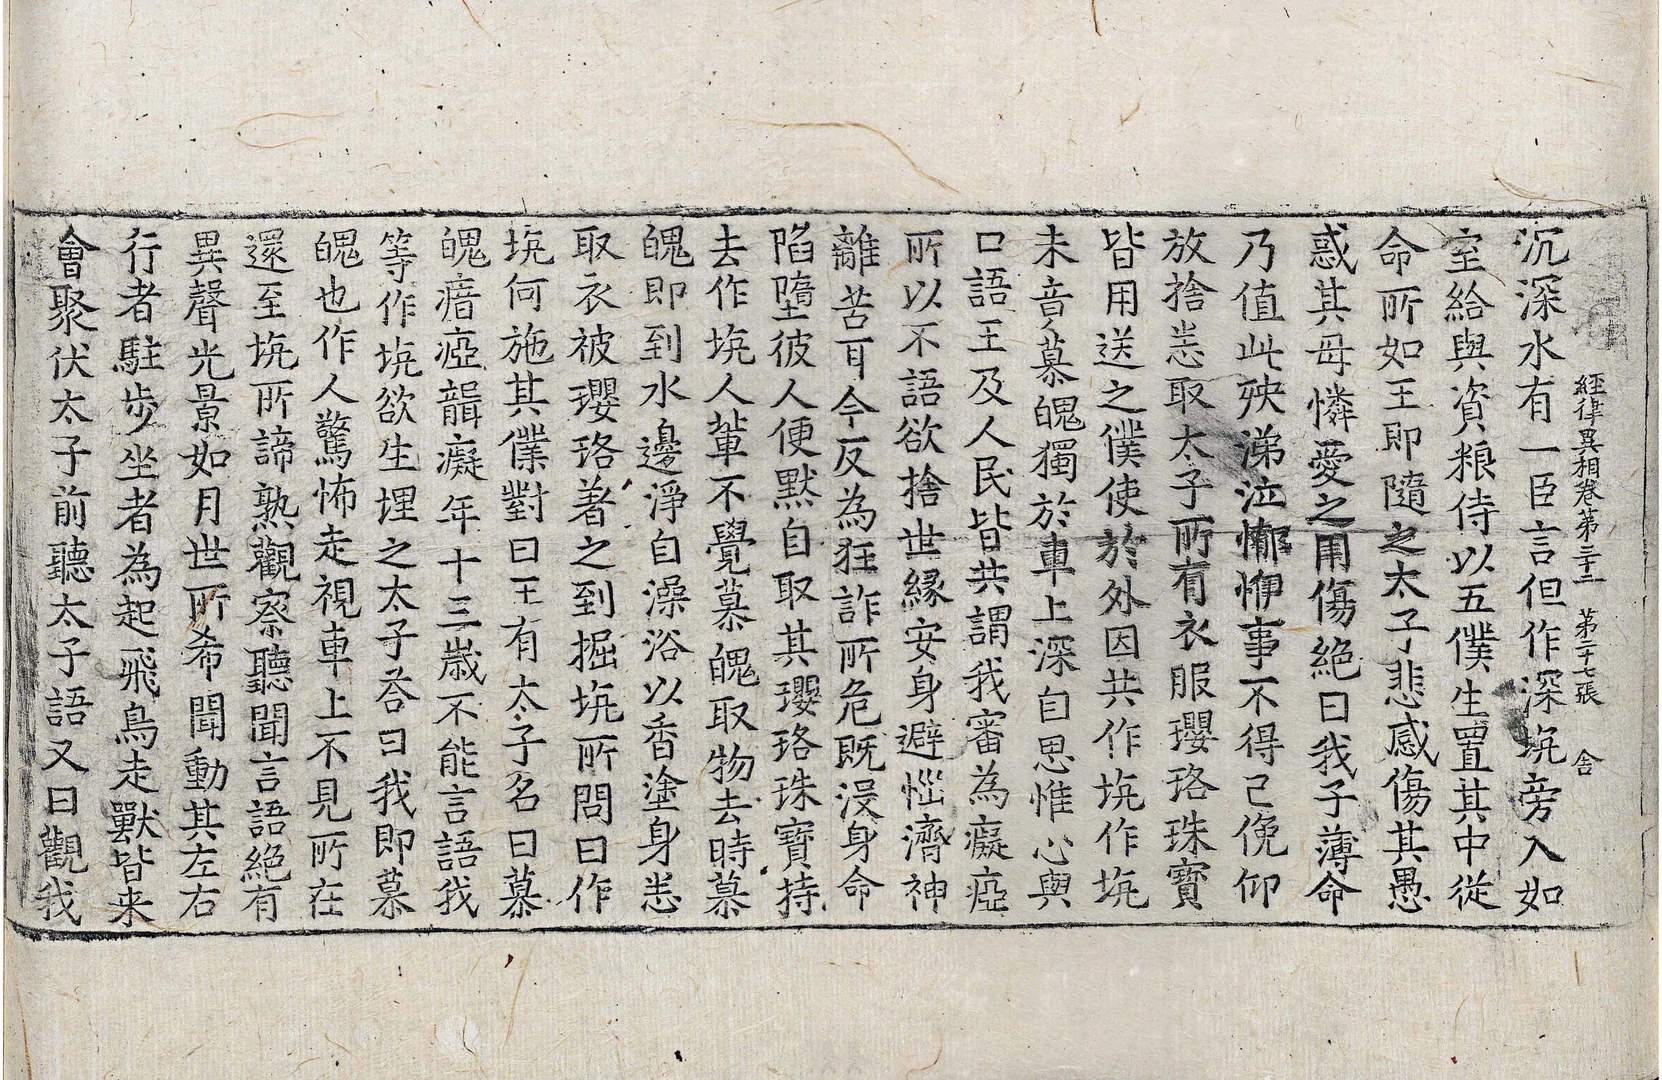 經律異相卷第三十二 第二十七張 舍
沉深水有一臣言但作深坑旁入如
室給與資粮侍以五僕生置其中從
命所如王即隨之太子悲感傷其愚
惑其母憐愛之用傷絕曰我子薄命
乃值此殃涕泣懨㦤事不得已俛仰
放捨恚取太子所有衣服瓔珞珠寶
皆用送之僕使於外因共作坑作坑
未竟慕魄獨於車上深自思惟心與
口語王及人民皆共謂我審為癡瘂
所以不語欲捨世緣安身避惱濟神
離苦耳今反為狂詐所危既沒身命
陷墮彼人便默自取其瓔珞珠寶持
去作坑人輩不覺慕魄取物去時慕
魄即到水邊淨自澡浴以香塗身恚
取衣被瓔珞著之到掘坑所問曰作
坑何施其僕對曰王有太子名曰慕
魄瘖瘂聾癡年十三歲不能言語我
等作坑欲生埋之太子荅曰我即慕
魄也作人驚怖走視車上不見所在
還至坑所諦熟觀察聽聞言語絕有
異聲光景如月世所希聞動其左右
行者駐步坐者為起飛鳥走獸皆来
會聚伏太子前聽太子語又曰觀我